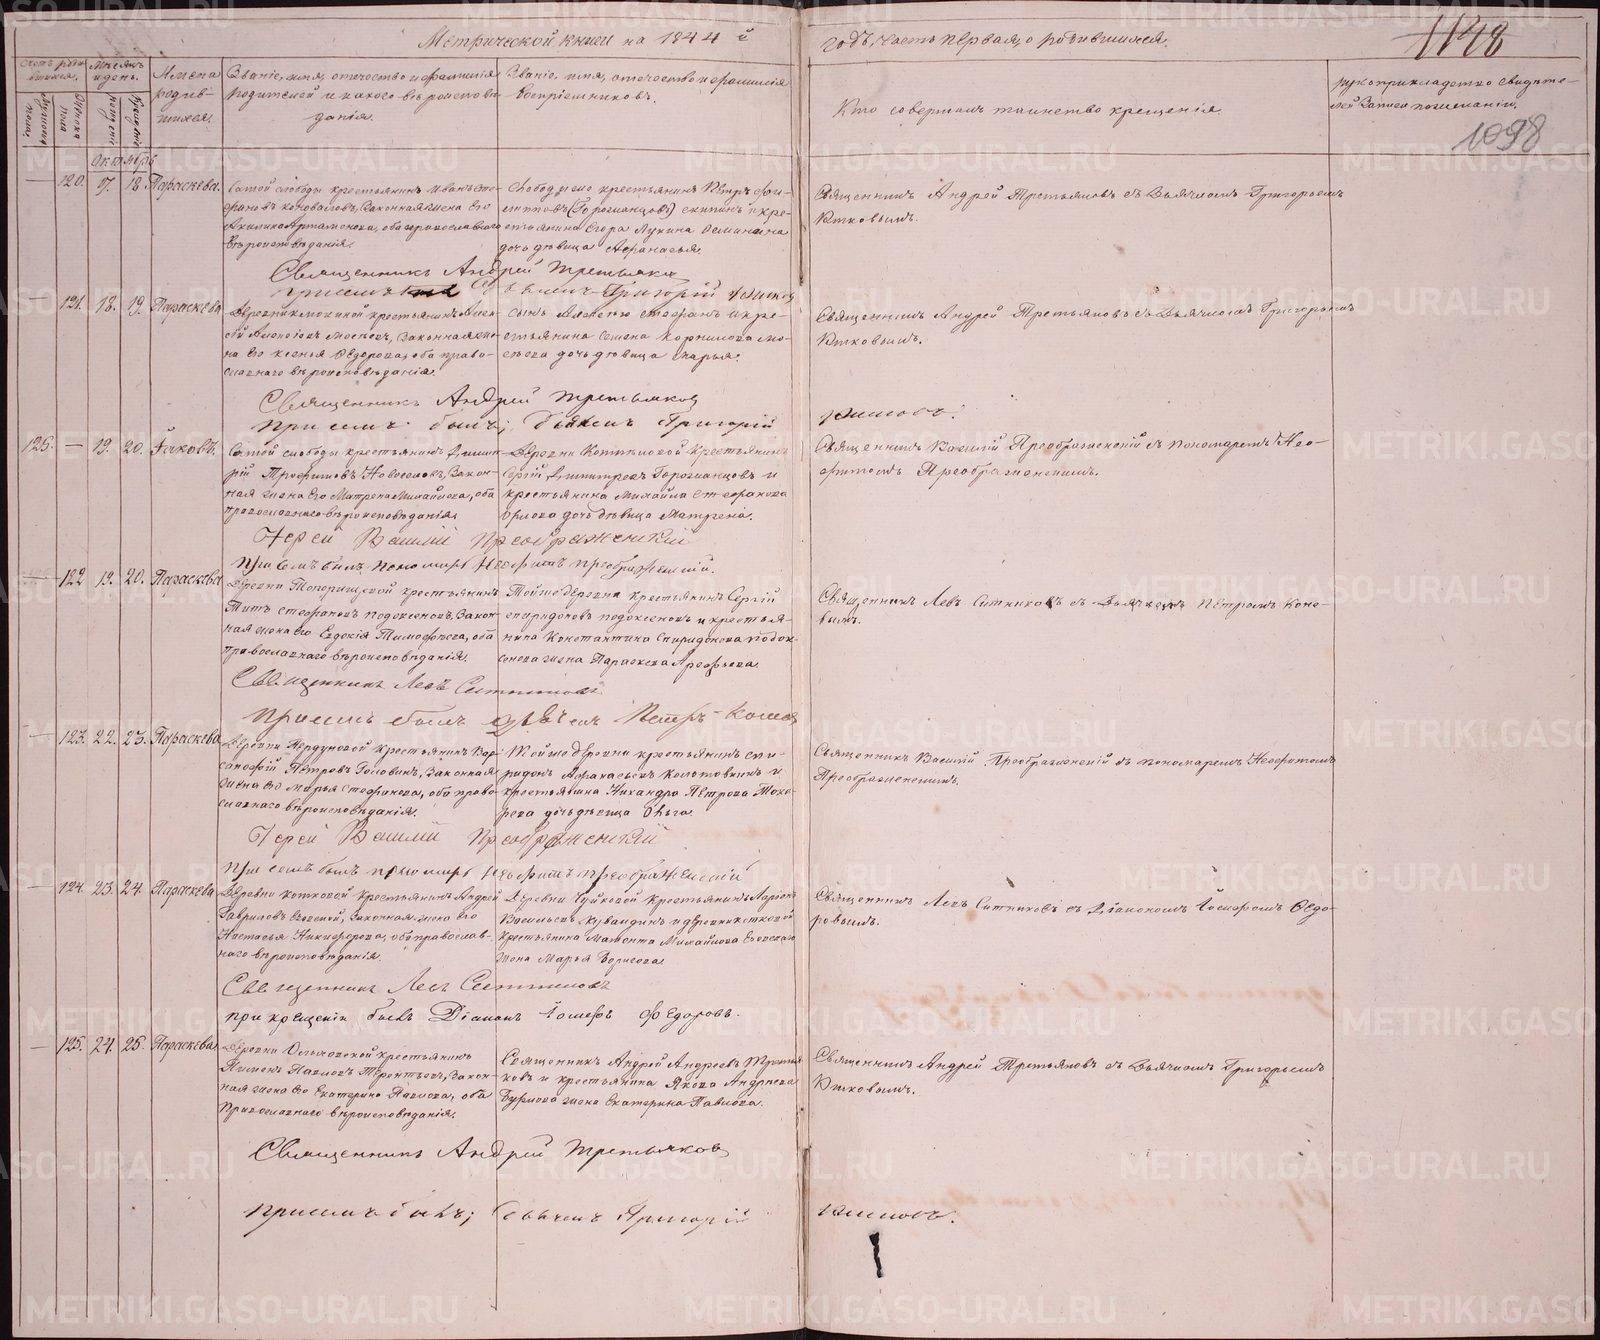 Метрической книги на 1844 й
годъ, часть первая, о родившихся.
1148
1098
Счетъ роди
вшихся.
Мѣсяцъ
и день.
Имена
родив-
шихся.
Званіе, имя, отечество и фамилія
родителей и какого вѣроиспове
данія.
Званіе, имя, отечество и фамилія
воспріемниковъ.
Кто совершалъ таинство крещенія.
рукоприкладство свидѣте-
лей записи по желанію.
Мужеска
пола.
Женска
пола
рожденія
крещенія
Октябрь
— 120. 17. 18. Параскева.
Самой слободы крестьянинъ Иванъ Сте-
фановъ Коноваловъ, Законная жена его
Акилина Артамонова, оба православнаго
вѣроисповѣданія.
Слободчико крестьянинъ Петръ
крестьянина Егора Лукина
дочь дѣвица Афанасья
Священникъ Андрей Третьяковъ съ Дьячкомъ Григорьемъ
Ютковымъ.
Священникъ Андрей Третьяков
при семъ былъ Григорій
— 121. 18. 19. Параскева
крестьянинъ Алек-
сѣй, Законная же-
на его Ксенія Ѳедорова, оба право-
славнаго вѣроисповѣданія.
сынъ Алексѣя Стефанъ и кре-
стьянина Семена Корнилова Мо-
сѣева дочь дѣвица Марья.
Священникъ Андрей Третьяковъ съ Дьячкомъ Григорьемъ
Ютковымъ.
Священникъ Андрей Третьяков
При семъ былъ; Дьячекъ Григорій
125. — 19. 20. Іаковъ.
Самой слободы крестьянинъ Димит-
рій Трофимовъ Новоселовъ, Закон-
ная жена его Матрена Михайлова, оба
православнаго вѣроисповѣданія
Деревни крестьянинъ
Сергій Димитревъ Горожанцовъ и
крестьянина Михайла Стефанова
Орлова дочь дѣвица Матрена.
Священникъ Василій Преображенскій съ пономаремъ Нео-
фитомъ Преображенскимъ.
Іерей Василій Преображенскій
При семъ былъ пономарь Неофитъ Преображенскій.
— 122 19. 20. Параскева
Деревни Топорищевой крестьянинъ
Титъ Стефановъ Подоксеновъ, Закон-
ная жена его Евдокія Тимофѣева, оба
православнаго вѣроисповѣданія.
Той же деревни крестьянинъ Сергій
Спиридоновъ Подоксеновъ и крестья-
нина Константина Спиридонова Подок-
сенова жена Параскева Арефьева
Священникъ Левъ Ситниковъ съ Дьячкомъ Петромъ Коно-
вымъ.
Священникъ Левъ Ситниковъ
При семъ былъ Дьячекъ Петръ
— 123. 22. 23. Параскева
Деревни Пердуновой крестьянинъ Вар-
санофій Петровъ Головинъ, Законная
жена его Марья Стефанова, оба право-
славнаго вѣроисповѣданія.
Той же деревни крестьянинъ Спи-
ридонъ Афанасьевъ Колотовкинъ и
крестьянина Никандра Петрова Тока-
рева дочь дѣвица Ольга
Священникъ Василій Преображенскій съ пономаремъ Неофитомъ
Преображенскимъ.
Іерей Василій Преображенскій
При семъ былъ пономарь Неофитъ Преображенскій
— 124. 23. 24. Параскева
Деревни Котковой крестьянинъ Андрей
Гавриловъ, Законная жена его
Настасья Никифорова, оба православ-
наго вѣроисповѣданія.
Деревни Чуйковой крестьянинъ Ларіонъ
Васильевъ Кувалдинъ и деревни Котковой
крестьянина Мамонта Михайлова
жена Марья Борисова
Священникъ Левъ Ситниковъ съ Діакономъ Іосифомъ Ѳедо-
ровымъ.
Священникъ Левъ Ситниковъ
при крещеніи былъ Діаконъ Іосифъ Федоровъ.
— 125. 24. 25. Параскева.
Деревни Ольховской крестьянинъ
Пименъ Павловъ Терентьевъ, Закон-
ная жена его Екатерина Павлова, оба
Православнаго вѣроисповѣданія.
Священникъ Андрей Андреевъ Третья-
ковъ и крестьянина Якова Андреева
Бурлова жена Екатерина Павлова.
Священникъ Андрей Третьяковъ съ Дьячкомъ Григорьемъ
Ютковымъ.
Священникъ Андрей Третьяков
При семъ былъ; Дьячекъ Григорій
METRIKI.GASO-URAL.RU